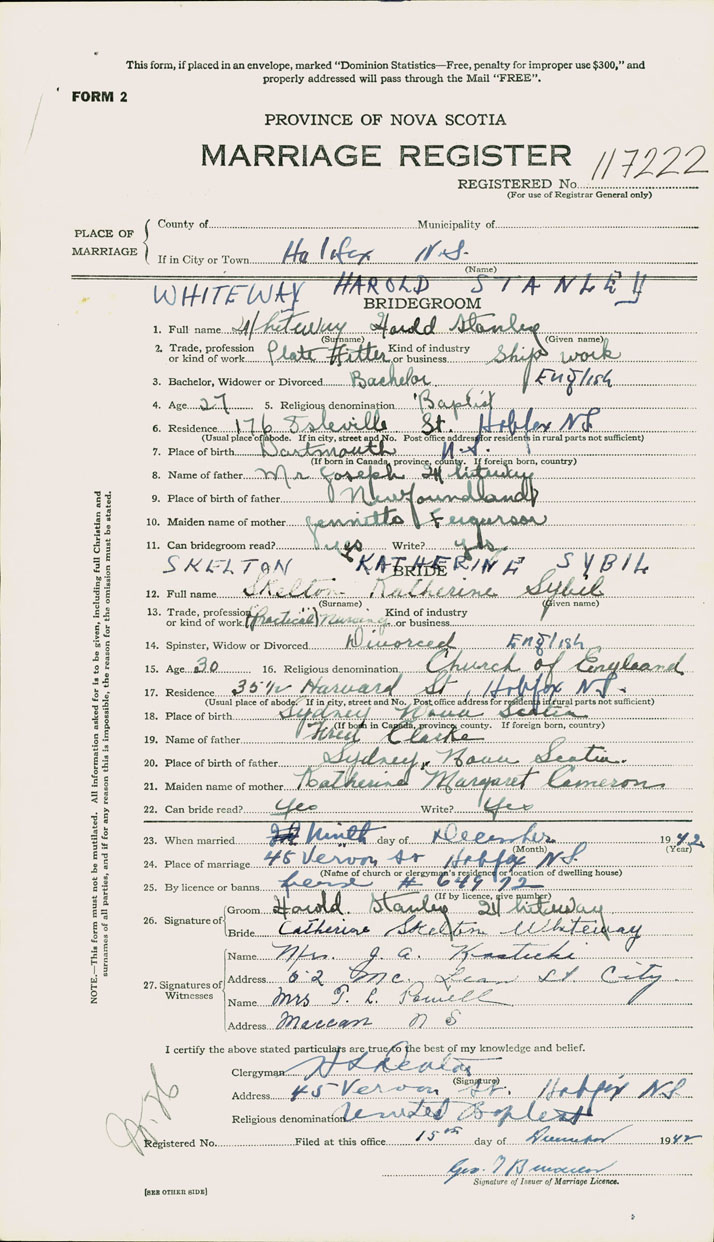 This form, if placed in an envelope, marked "Dominion Statistics—Free, penalty for improper use $300," and
properly addressed will pass through the Mail "FREE".
FORM 2
PROVINCE OF NOVA SCOTIA
MARRIAGE REGISTER 117222
REGISTERED No.
(For use of Registrar General only)
PLACE OF MARRIAGE
County of Municipality of
If in City or Town Halifax N.S.
(Name)
WHITEWAY HAROLD STANLEY
BRIDEGROOM
1. Full name Whiteway Harold Stanley
(Surname) (Given name)
2. Trade, profession or kind of work Plate Fitter Kind of industry or business Ship work
3. Bachelor, Widower or Divorced Bachelor English
4. Age 27 5. Religious denomination Baptist
6. Residence 176 St. Halifax NS
(Usual place of abode. If in city, street and No. Post office address for residents in rural parts not sufficient)
7. Place of birth Dartmouth N.S.
(If born in Canada, province, county. If foreign born, country)
8. Name of father Mr Joseph Whiteway
9. Place of birth of father Newfoundland
10. Maiden name of mother Ferguson
11. Can bridegroom read? yes Write? yes
SKELTON KATHERINE SYBIL
BRIDE
12. Full name Skelton Katherine Sybil
(Surname) (Given name)
13. Trade, profession or kind of work (Practical) Nursing Kind of industry or business
14. Spinster, Widow or Divorced Divorced English
15. Age 30 16. Religious denomination Church of England
17. Residence 35½ Harvard St, Halifax N.S.
(Usual place of abode. If in city, street and No. Post office address for residents in rural parts not sufficient)
18. Place of birth Sydney Nova Scotia
(If born in Canada, province, county. If foreign born, country)
19. Name of father Clarke
20. Place of birth of father Sydney, Nova Scotia.
21. Maiden name of mother Katherine Margaret Cameron
22. Can bride read? Yes Write? Yes
23. When married Ninth day of December 1942
(Month) (Year)
24. Place of marriage 45 Vernon St Halifax NS
(Name of church or clergyman's residence or location of dwelling house)
25. By licence or banns # 64972
(If by licence, give number)
26. Signature of
Groom Harold Stanley Whiteway
Bride Catherine Skelton Whiteway
27. Signatures of Witnesses
Name Mrs. J. A.
Address 62 Mc Lean St City
Name Mrs T. L. Powell
Address N S
I certify the above stated particulars are true to the best of my knowledge and belief.
Clergyman
(Signature)
Address 45 Vernon St. Halifax NS
Religious denomination United Baptist
Registered No. Filed at this office 15th day of December 1942
Geo.
Signature of Issuer of Marriage Licence.
[SEE OTHER SIDE]
NOTE.—This form must not be mutilated. All information asked for is to be given, including full Christian and
surnames of all parties, and if for any reason this is impossible, the reason for the omission must be stated.